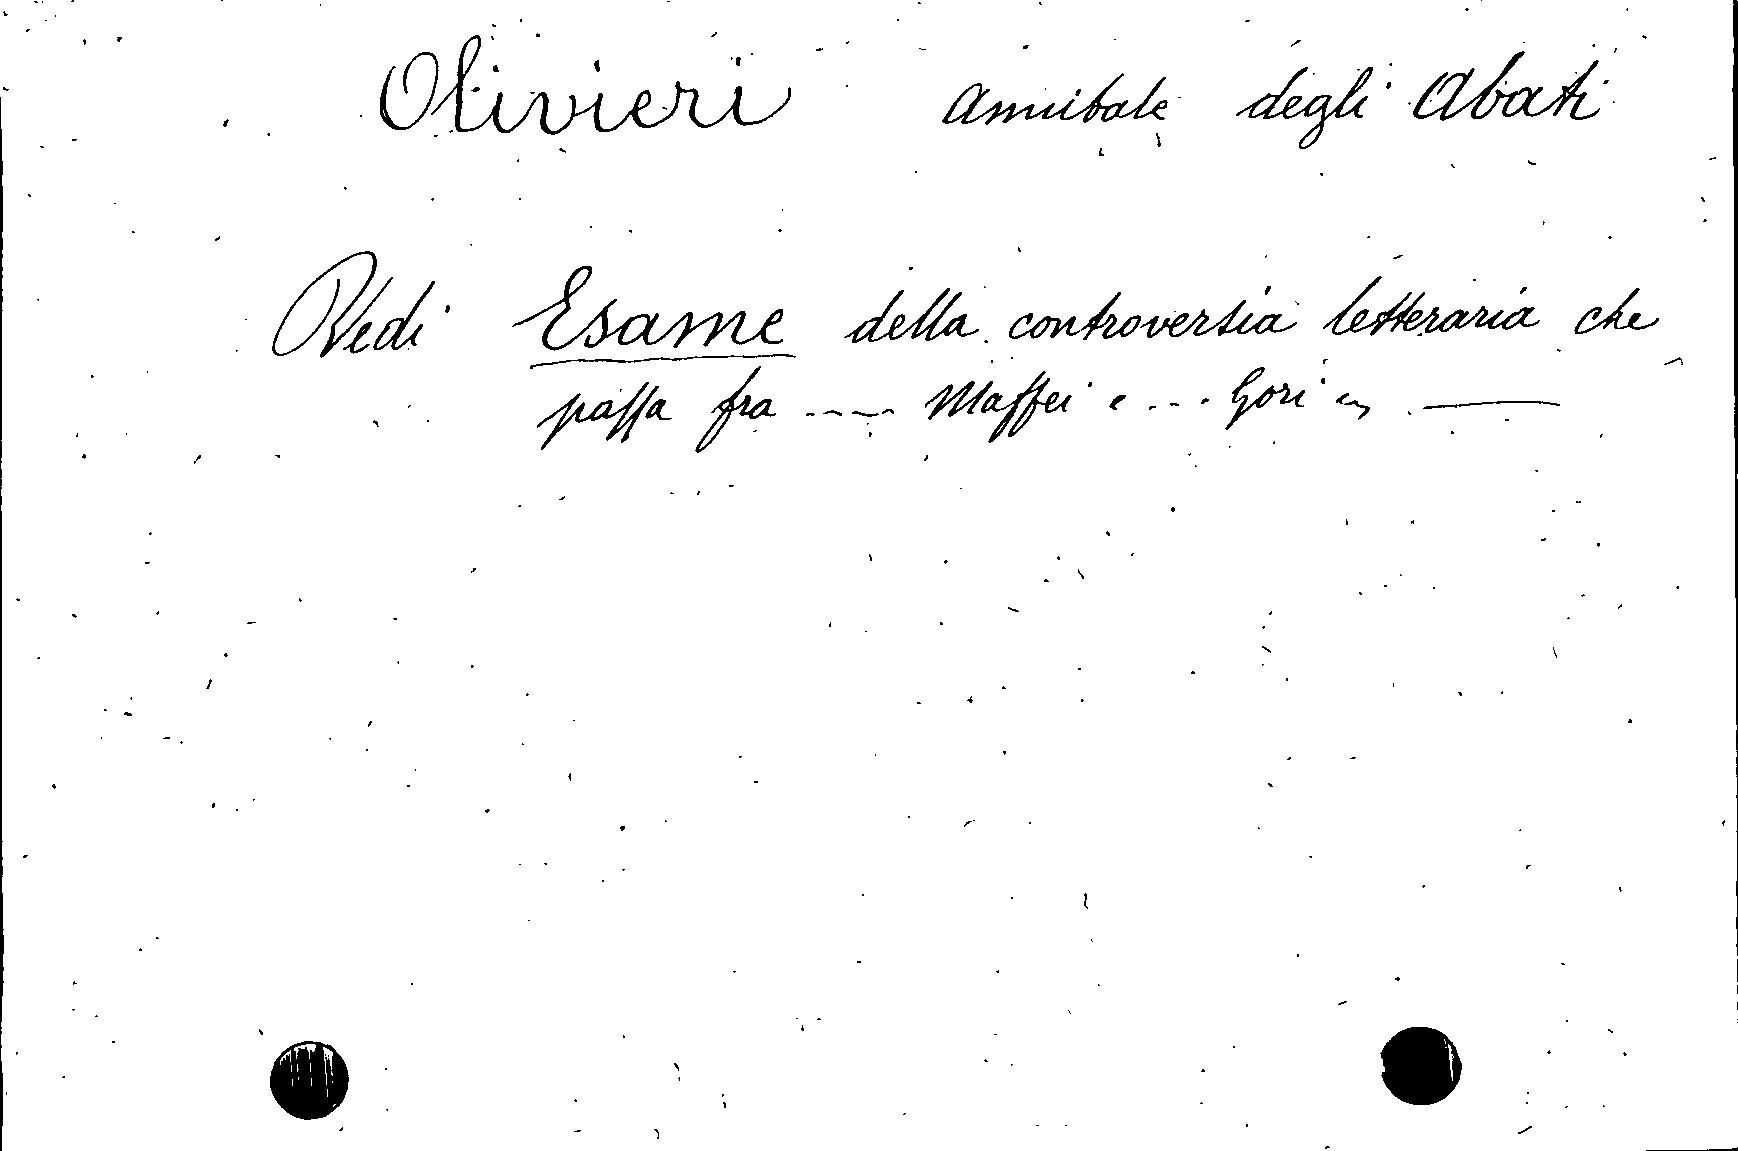 Olivieri Annibale degli Abati
Vedi Esame della controversia letteraria che
passa fra .... Maffei e ... Gori in ———